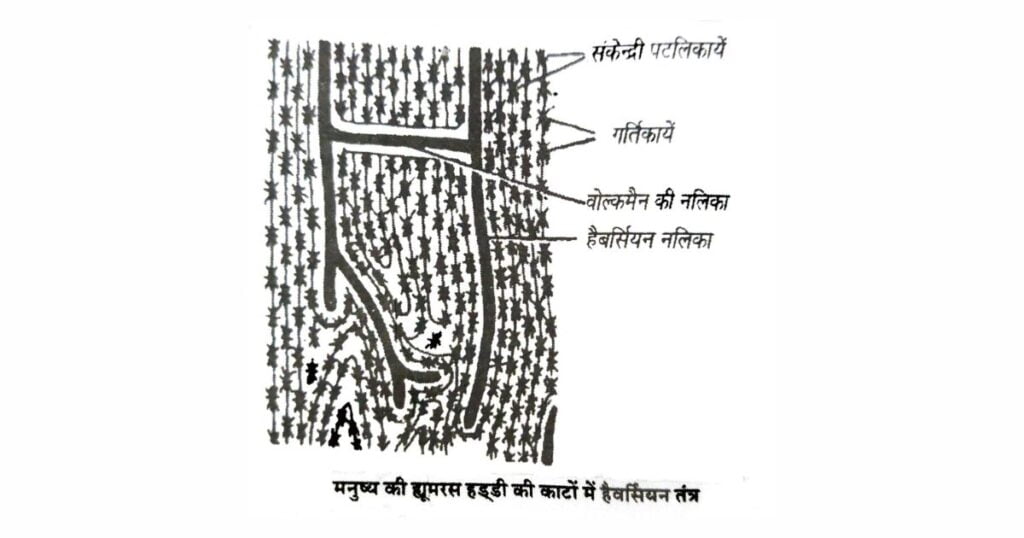 संकेन्द्री पटलिकायें
गर्तिकायें
वोल्कमैन की नलिका
हैबर्सियन नलिका
मनुष्य की ह्यूमरस हड्डी की काटों में हैवर्सियन तंत्र